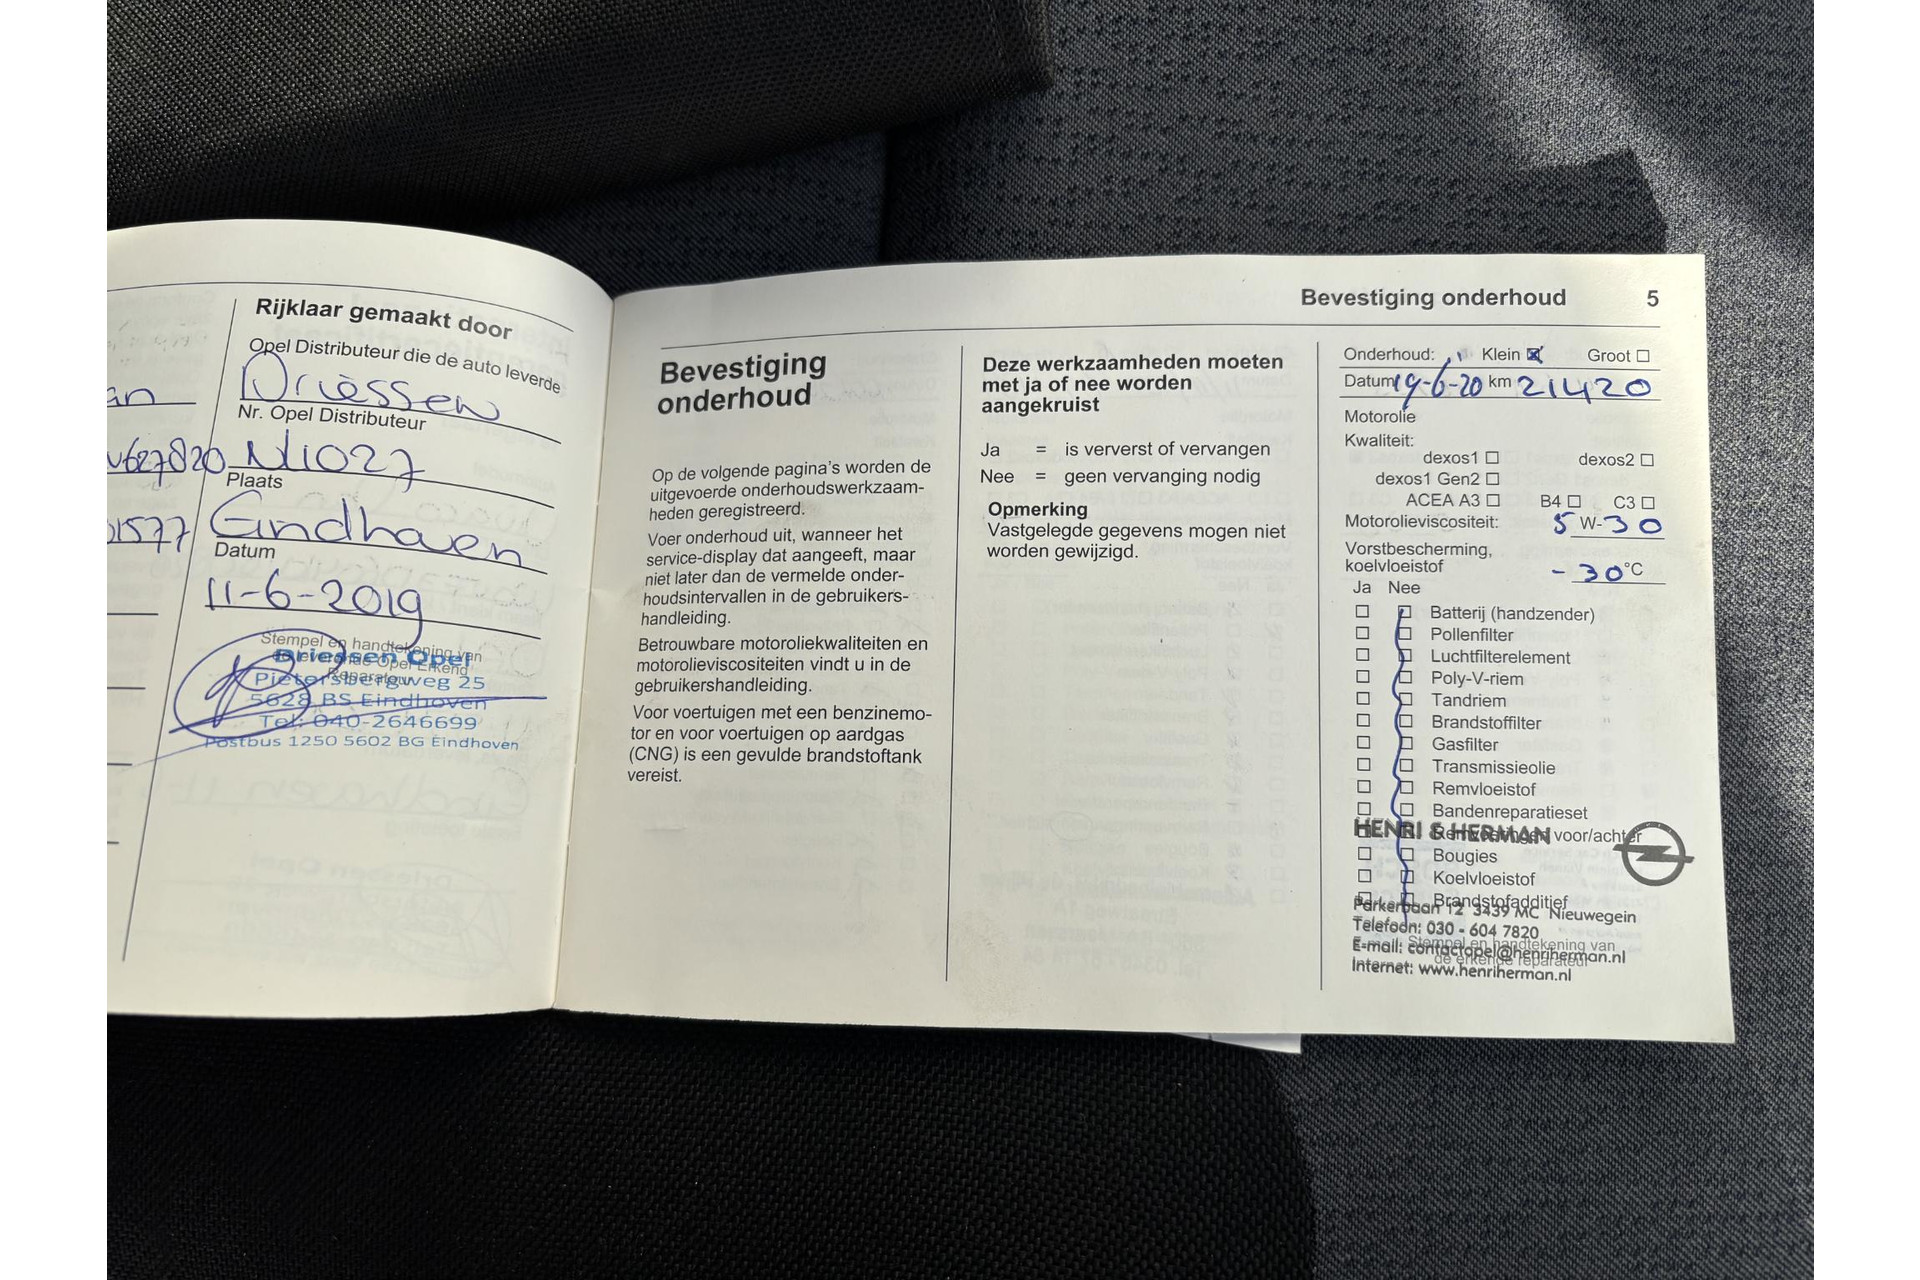 Rijklaar gemaakt door
Opel Distributeur die de auto leverde
Driessen
Nr. Opel Distributeur
N1027
Plaats
Eindhoven
Datum
11-6-2019
Stempel en handtekening van
de leverende Opel Erkend
Reparateur
Driessen Opel
Pietersbergweg 25
5628 BS Eindhoven
Tel: 040-2646699
Postbus 1250 5602 BG Eindhoven
an
627820
01577
Bevestiging onderhoud 5
Bevestiging
onderhoud
Op de volgende pagina's worden de
uitgevoerde onderhoudswerkzaam-
heden geregistreerd.
Voer onderhoud uit, wanneer het
service-display dat aangeeft, maar
niet later dan de vermelde onder-
houdsintervallen in de gebruikers-
handleiding.
Betrouwbare motoroliekwaliteiten en
motorolieviscositeiten vindt u in de
gebruikershandleiding.
Voor voertuigen met een benzinemo-
tor en voor voertuigen op aardgas
(CNG) is een gevulde brandstoftank
vereist.
Deze werkzaamheden moeten
met ja of nee worden
aangekruist
Ja = is ververst of vervangen
Nee = geen vervanging nodig
Opmerking
Vastgelegde gegevens mogen niet
worden gewijzigd.
Onderhoud: Klein ☒ Groot ☐
Datum 19-6-20 km 21420
Motorolie
Kwaliteit:
dexos1 ☐ dexos2 ☐
dexos1 Gen2 ☐
ACEA A3 ☐ B4 ☐ C3 ☐
Motorolieviscositeit: 5 W-30
Vorstbescherming,
koelvloeistof -30°C
Ja Nee
☐ ☐ Batterij (handzender)
☐ ☐ Pollenfilter
☐ ☐ Luchtfilterelement
☐ ☐ Poly-V-riem
☐ ☐ Tandriem
☐ ☐ Brandstoffilter
☐ ☐ Gasfilter
☐ ☐ Transmissieolie
☐ ☐ Remvloeistof
☐ ☐ Bandenreparatieset
voor/achter
☐ ☐ Bougies
☐ ☐ Koelvloeistof
☐ ☐ Brandstofadditief
Stempel en handtekening van
de erkende reparateur
HENRI & HERMAN
Parkerbaan 12 3439 MC Nieuwegein
Telefoon: 030 - 604 7820
E-mail: contactopel@henriherman.nl
Internet: www.henriherman.nl